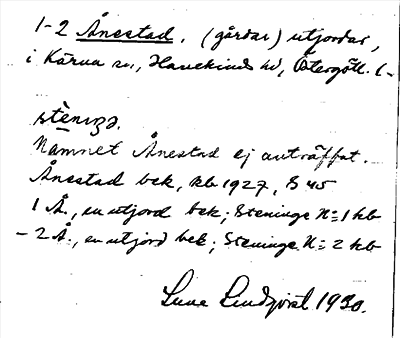 1-2 Ånestad, (gårdar) utjordar,
i Kärna sn, Hanekinds hd, Östergötl. (-
stèninga.
Namnet Ånestad ej anträffat.
Ånestad bek, kb 1927, § 45
1 Å., en utjord bek; Steninge N=1 kb
- 2 Å., en utjord bek; Steninge N=2 kb
Lindqvist 1930.